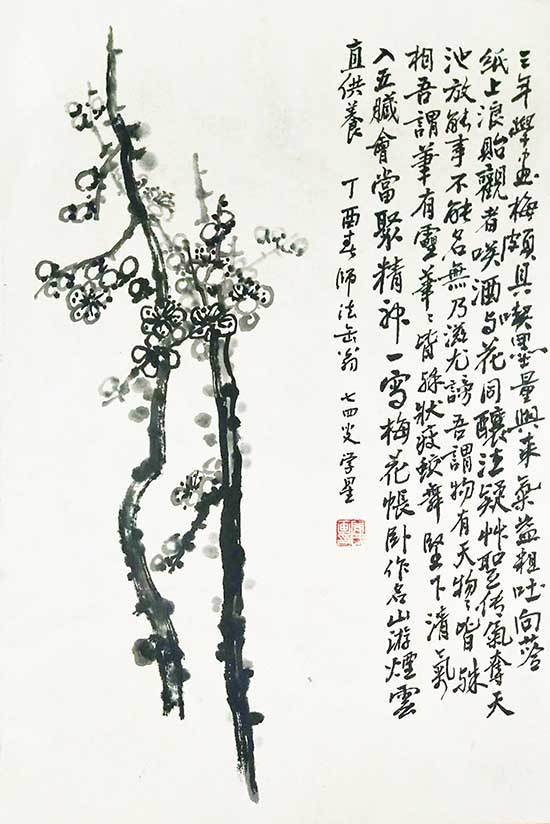 三年學画梅頗具喫墨量興来氣益粗吐向苔
纸上浪貽觀者唉酒与花同釀法疑艸聖传氣奪天
池放能事不能名無乃滋尤謗吾謂物有天物〻皆殊
相吾謂筆有靈筆〻皆殊狀瘦蛟舞壑下清氣
入五臟會當聚精神一寫梅花帳卧作名山游煙雲
直供養 丁酉春師法缶翁 七四叟学星